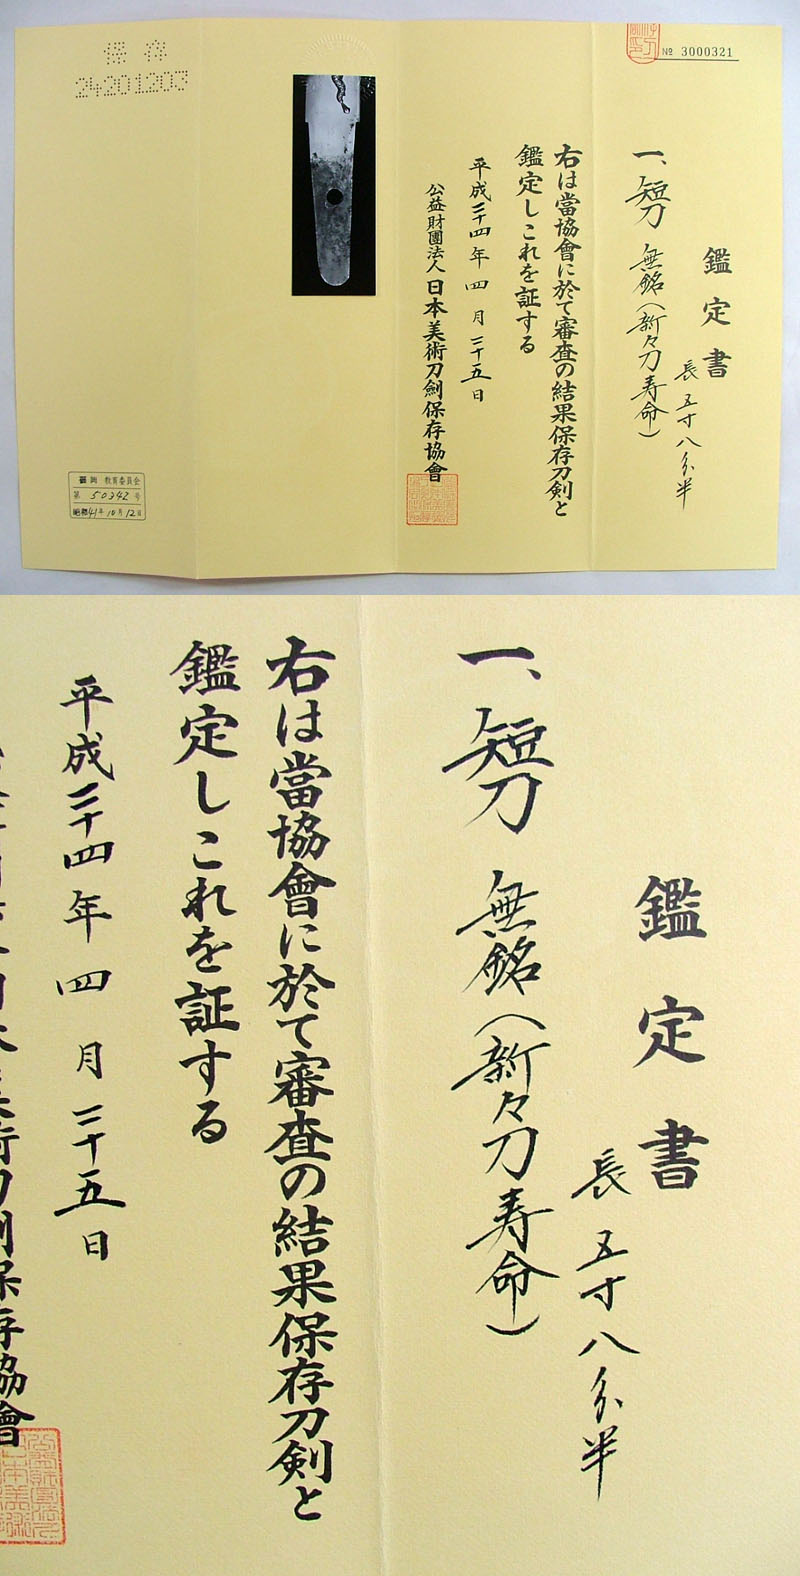 № 3000321
鑑定書
長五寸八分半
一、短刀 無銘（新々刀寿命）
右は當協會に於て審査の結果保存刀剣と
鑑定しこれを証する
平成二十四年四月二十五日
公益財團法人 日本美術刀劍保存協會
保存
24201203
教育委員会
第50342号
昭和41年10月12日
鑑定書
長五寸八分半
一、短刀 無銘（新々刀寿命）
右は當協會に於て審査の結果保存刀剣と
鑑定しこれを証する
平成二十四年四月二十五日
日本美術刀劍保存協會